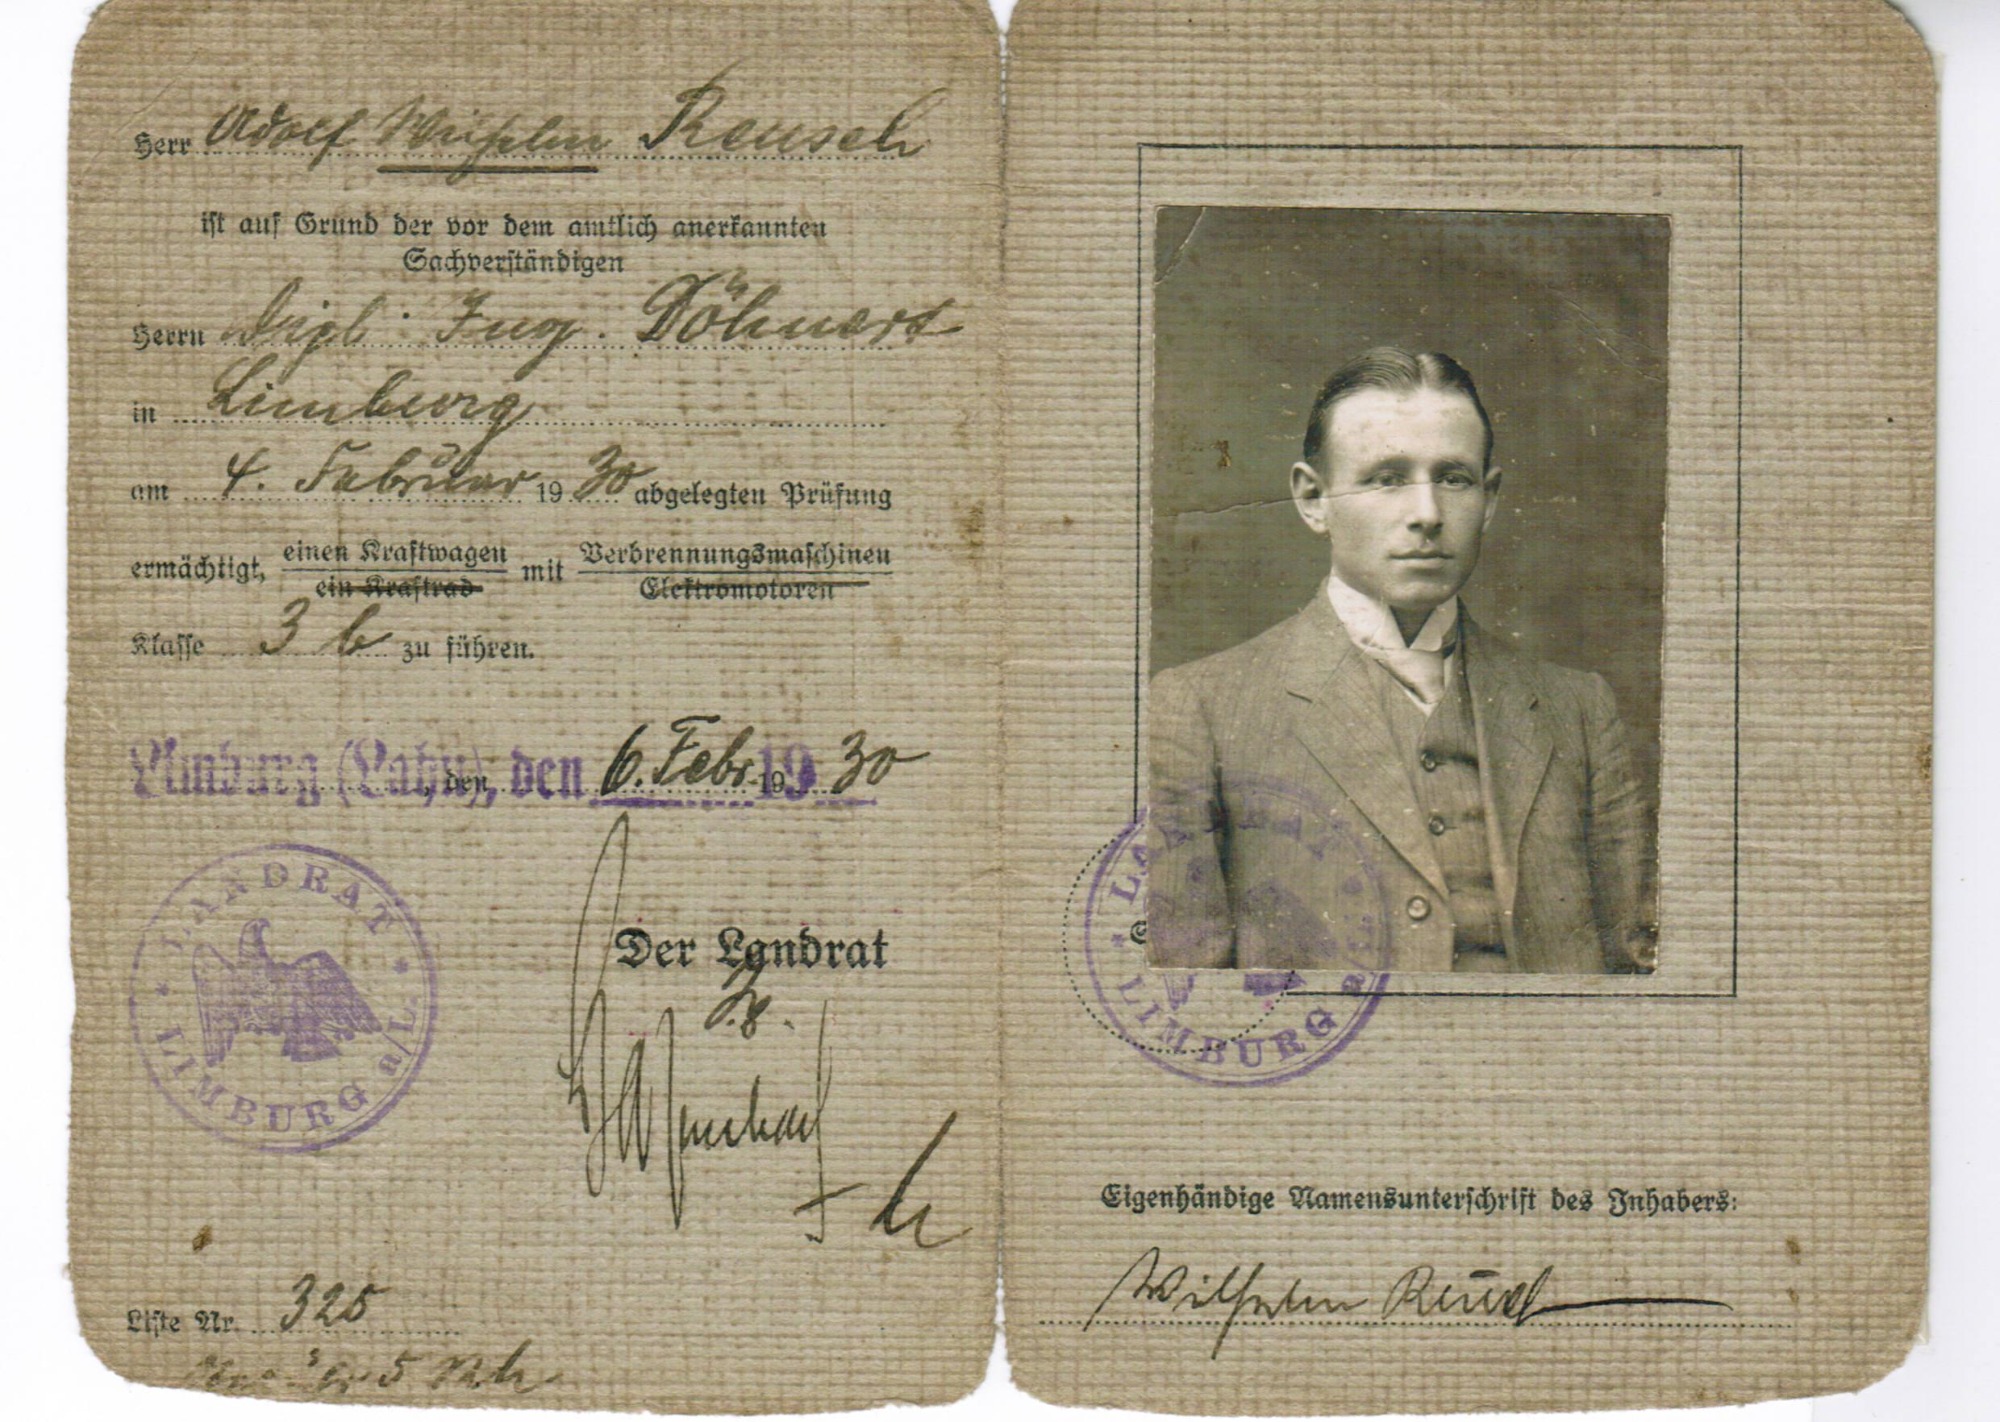 Herr Adolf Wilhelm Reusch
ist auf Grund der vor dem amtlich anerkannten
Sachverständigen
Herrn Dipl. Ing. Döhnert
in Limburg
am 4. Februar 1930 abgelegten Prüfung
ermächtigt, einen Kraftwagen mit Verbrennungsmaschinen
ein Kraftrad Elektromotoren
Klasse 3 b zu führen.
Limburg (Lahn), den 6. Febr. 1930
den 19
Der Landrat
LANDRAT
LIMBURG a/L.
Liste Nr. 325
LANDRAT
LIMBURG a/L.
Eigenhändige Namensunterschrift des Inhabers:
Wilhelm Reusch